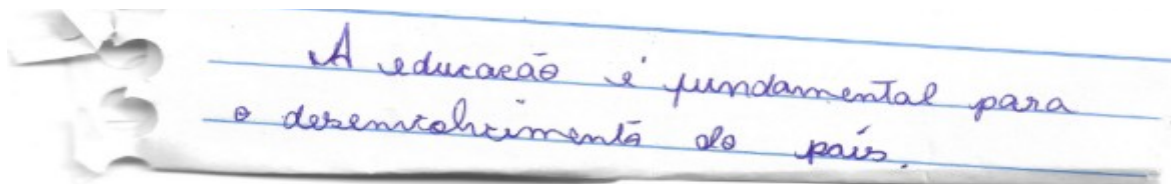 A educação é fundamental para
o desenvolvimento do país.